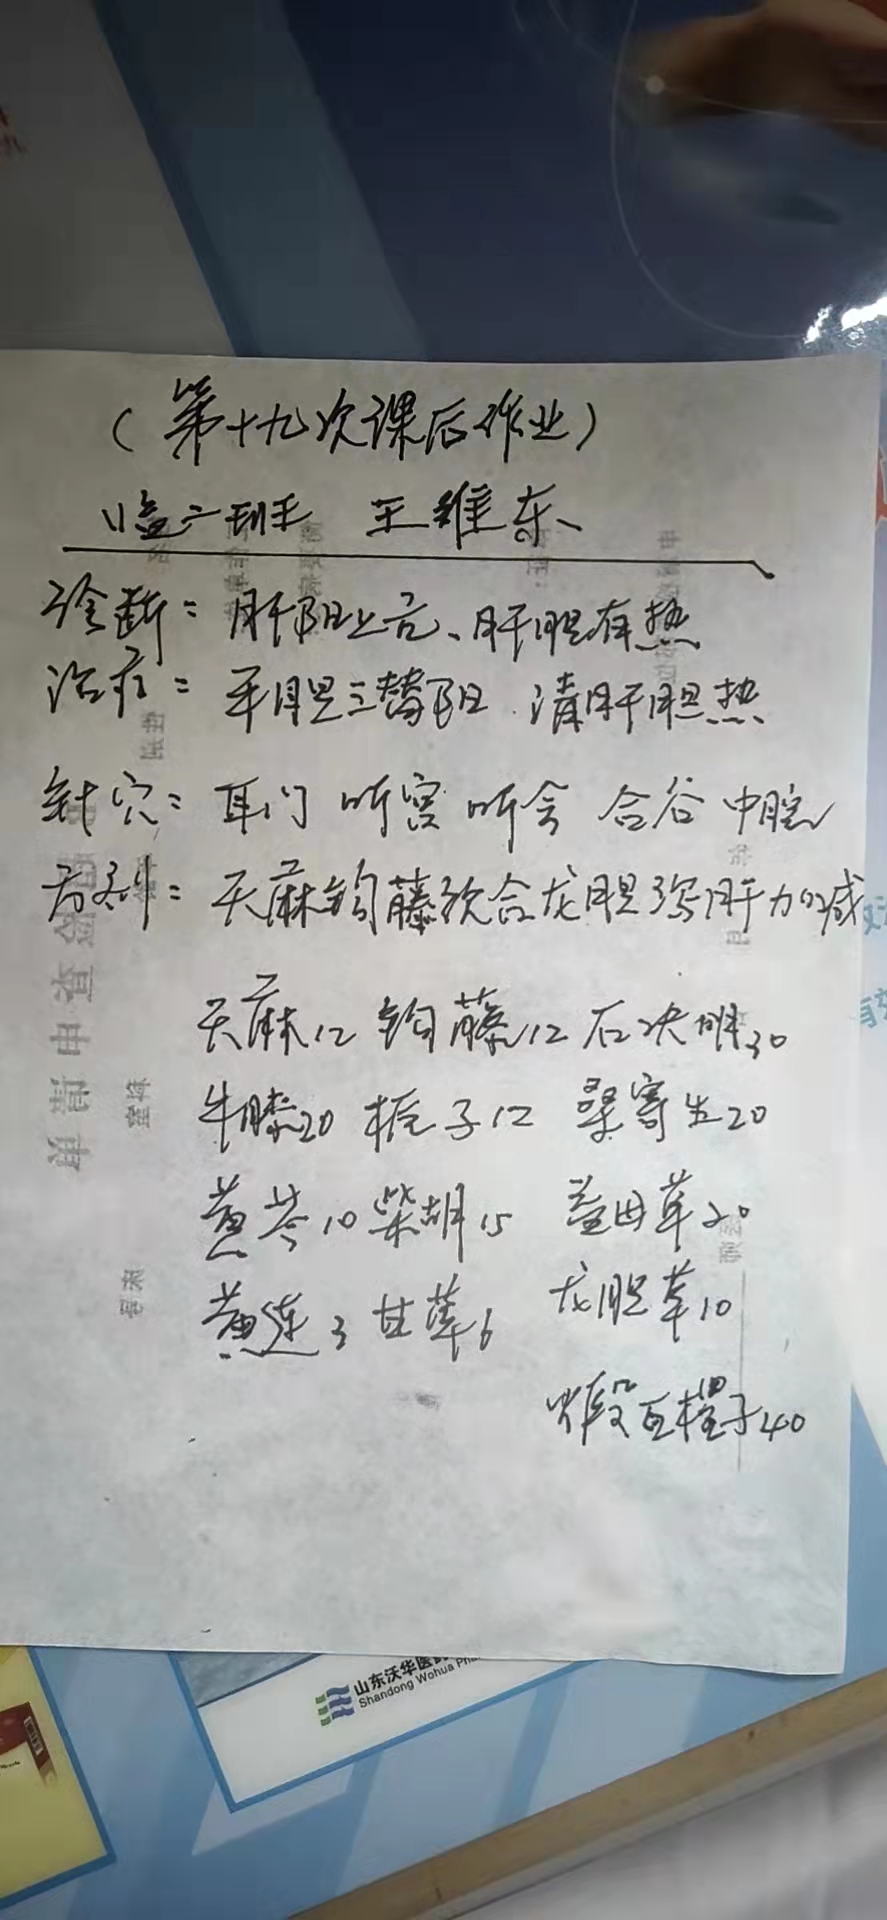 （第十九次课后作业）
临二班 王维东
诊断：肝阳上亢、肝胆有热
治疗：平胆三替阳 清肝胆热
针穴：耳门 听宫 听会 合谷 中脘
方剂：天麻钩藤饮合龙胆泻肝加减
天麻12 钩藤12 石决明30
牛膝20 栀子12 桑寄生20
黄芩10 柴胡15 益母草20
黄连3 甘草6 龙胆草10
煅瓦楞子40
山东沃华医药
Shandong Wohua Pha